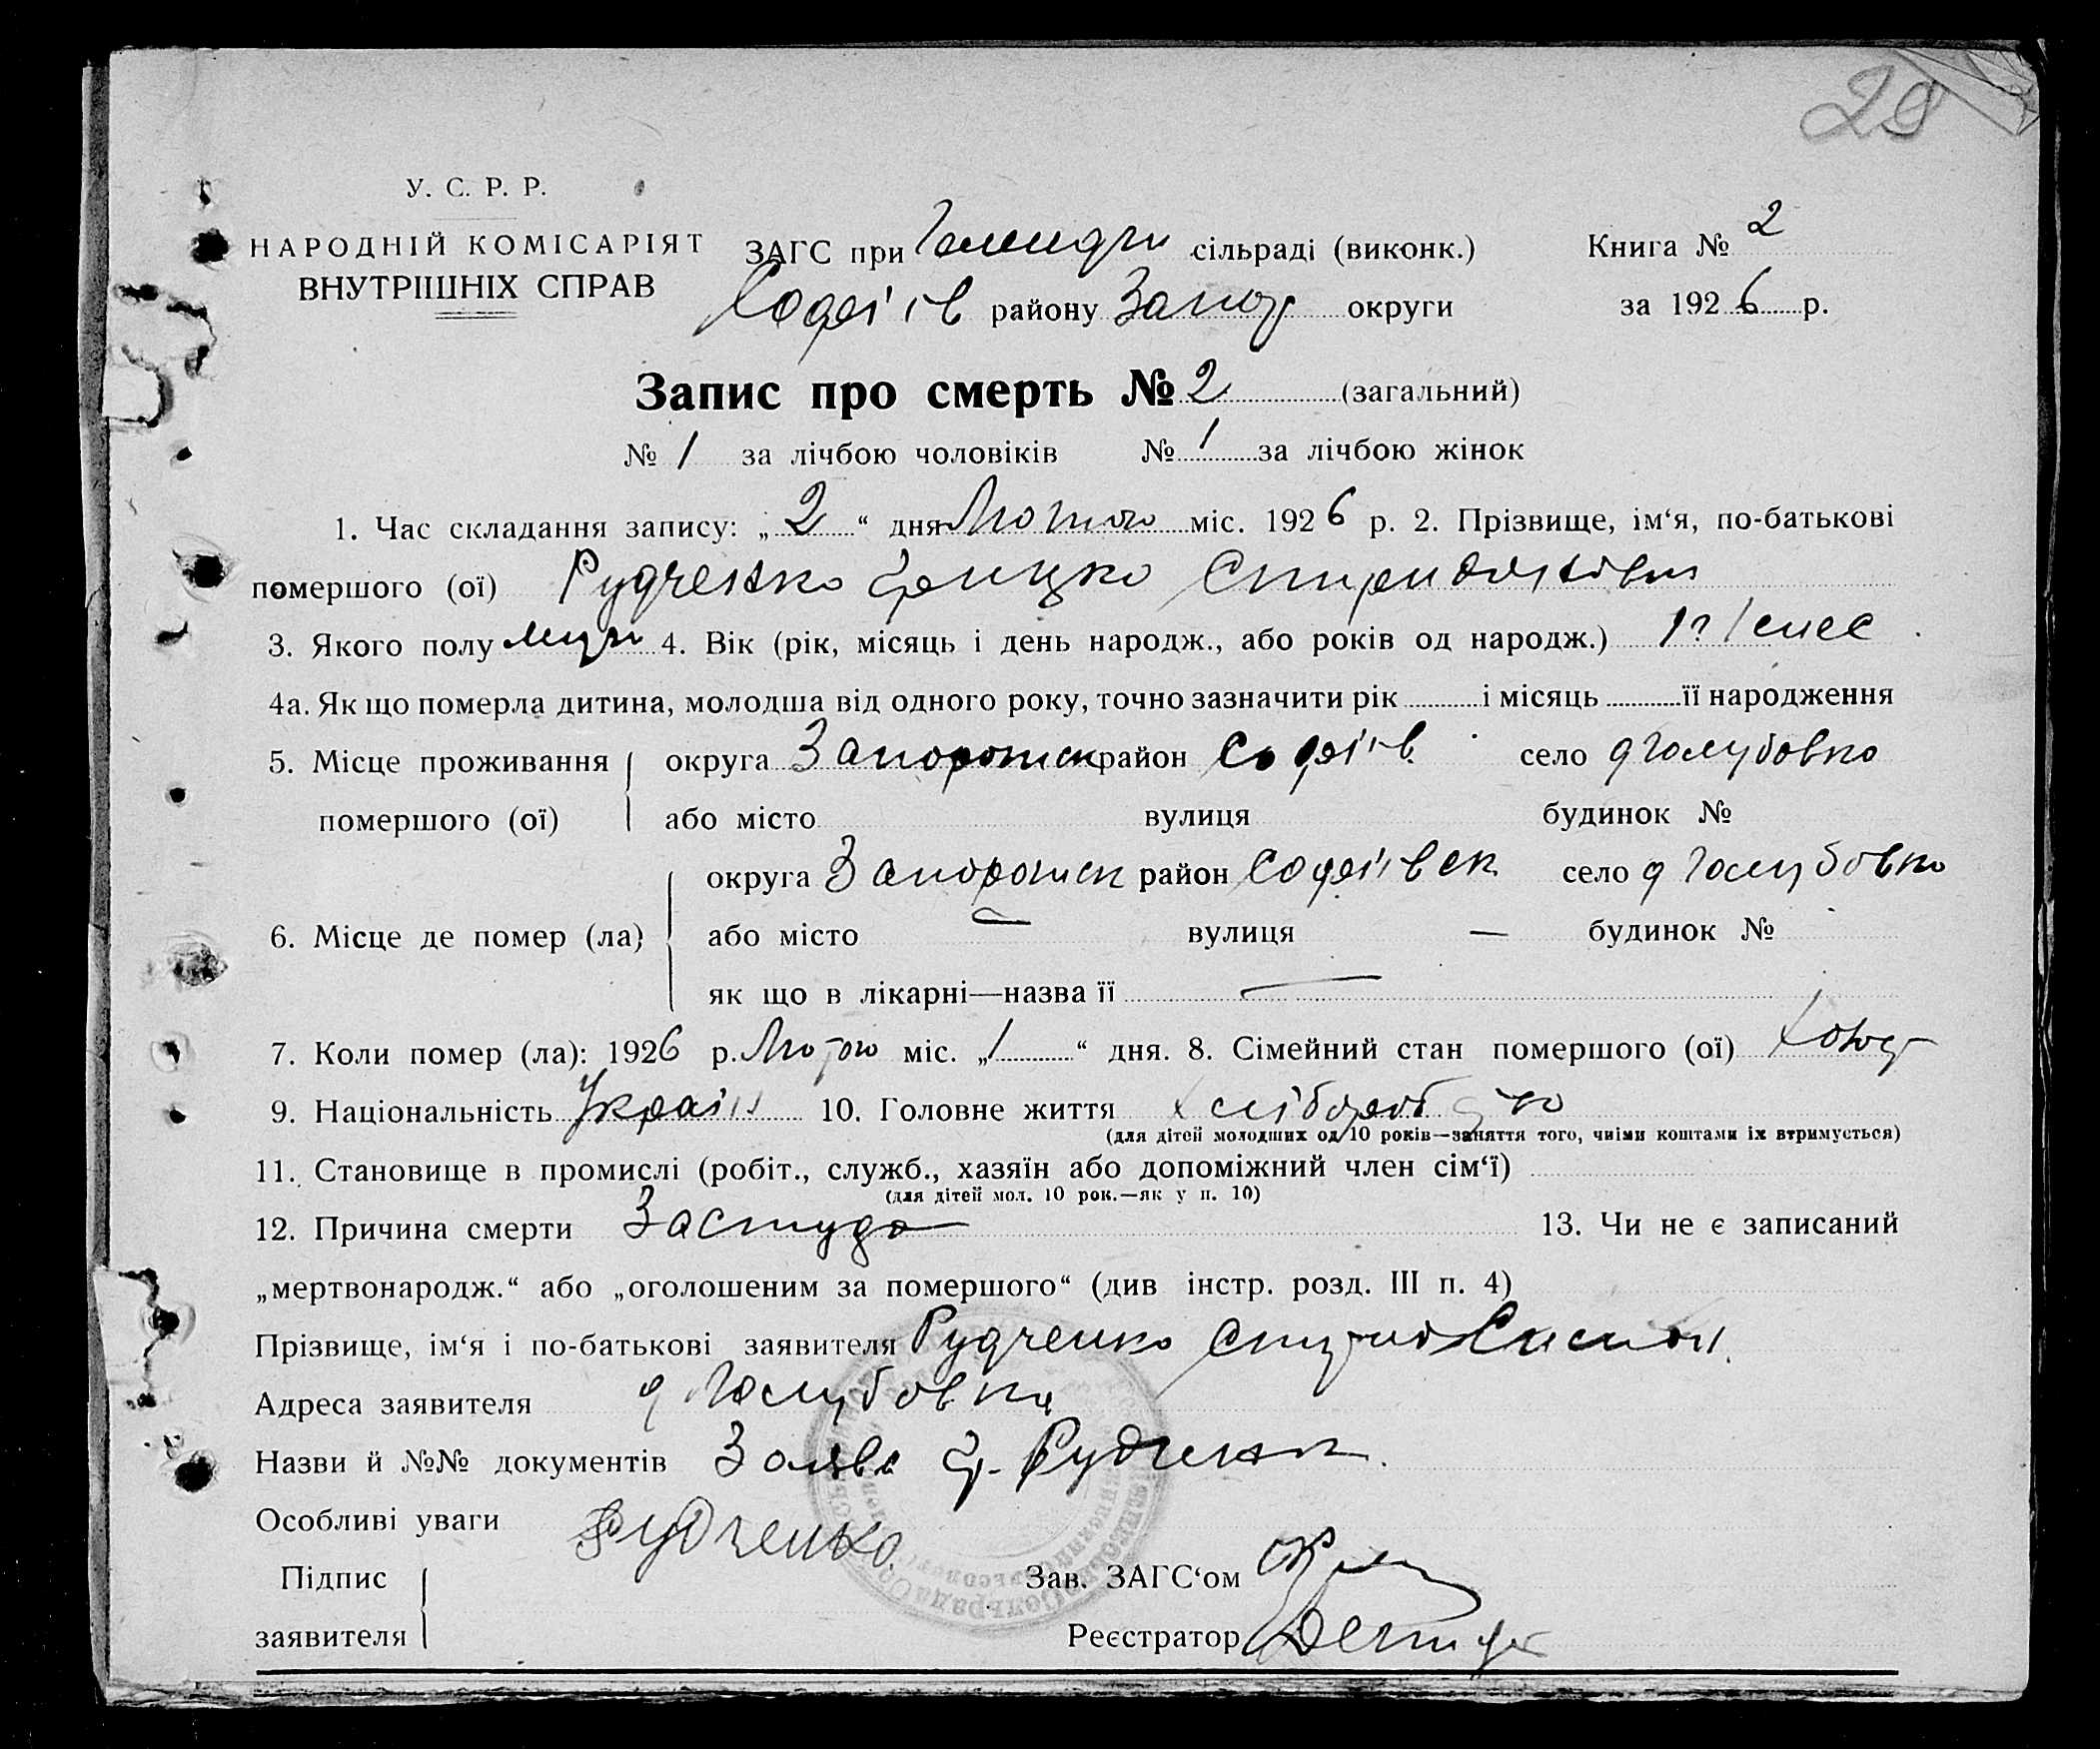 29
У. С. Р. Р.
НАРОДНІЙ КОМІСАРІЯТ
ВНУТРІШНІХ СПРАВ
ЗАГС при сільраді (виконк.) Книга № 2
Софіїв району Запор округи за 1926 р.
Запис про смерть № 2 (загальний)
№ 1 за лічбою чоловіків № 1 за лічбою жінок
1. Час складання запису: „2“ дня Лютого міс. 1926 р. 2. Прізвище, ім‘я, по-батькові
помершого (ої) Рудченко Грицько Спиридонович
3. Якого полу муж 4. Вік (рік, місяць і день народж., або років од народж.) 1 г 1 мес
4а. Як що померла дитина, молодша від одного року, точно зазначити рік і місяць її народження
5. Місце проживання округа Запорожск район Софіїв село д Голубовка
помершого (ої) або місто вулиця будинок №
округа Запорожск район Софіївск село д Голубовка
6. Місце де помер (ла) або місто — вулиця — будинок №
як що в лікарні—назва її —
7. Коли помер (ла): 1926 р. Лютого міс. „1“ дня. 8. Сімейний стан помершого (ої) холост
9. Національність Україн 10. Головне життя
(для дітей молодших од 10 років—заняття того, чиїми коштами їх втримується)
11. Становище в промислі (робіт., служб., хазяїн або допоміжний член сім‘ї)
(для дітей мол. 10 рок.—як у п. 10)
12. Причина смерти Застуда 13. Чи не є записаний
„мертвонародж.“ або „оголошеним за помершого“ (див інстр. розд. III п. 4)
Прізвище, ім‘я і по-батькові заявителя Рудченко
Адреса заявителя д Голубовка
Назви й №№ документів Заява гр. Рудченк.
Особливі уваги
Рудченко.
Підпис
заявителя
Зав. ЗАГС‘ом
Реєстратор